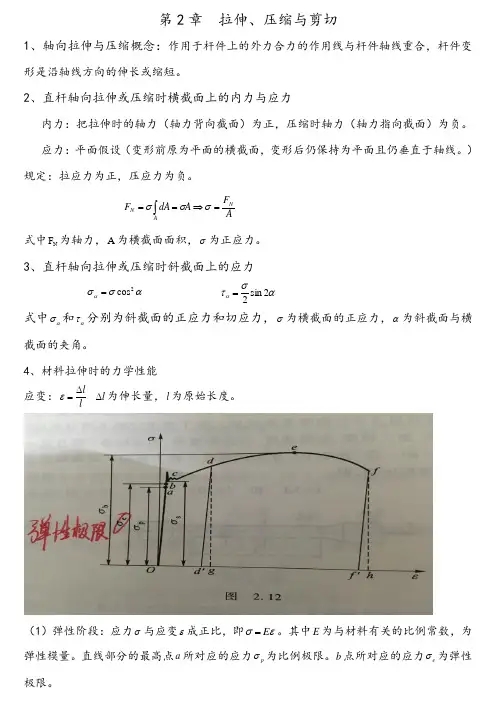 第2章 拉伸、压缩与剪切
1、轴向拉伸与压缩概念：作用于杆件上的外力合力的作用线与杆件轴线重合，杆件变
形是沿轴线方向的伸长或缩短。
2、直杆轴向拉伸或压缩时横截面上的内力与应力
内力：把拉伸时的轴力（轴力背向截面）为正，压缩时轴力（轴力指向截面）为负。
应力：平面假设（变形前原为平面的横截面，变形后仍保持为平面且仍垂直于轴线。）
规定：拉应力为正，压应力为负。
F_N = σ∫_A dA = σA ⇒ σ = F_N/A
式中F_N为轴力，A为横截面面积，σ为正应力。
3、直杆轴向拉伸或压缩时斜截面上的应力
σ_α = σcos²α τ_α = σ/2 sin2α
式中σ_α和τ_α分别为斜截面的正应力和切应力，σ为横截面的正应力，α为斜截面与横
截面的夹角。
4、材料拉伸时的力学性能
应变：ε = Δl/l Δl为伸长量，l为原始长度。
σ
e
d
c
f
b
a
σ_b
σ_e
σ_p
σ_s
弹性极限
O
d′ g
f′ h
ε
图 2.12
（1）弹性阶段：应力σ与应变ε成正比，即σ=Eε。其中E为与材料有关的比例常数，为
弹性模量。直线部分的最高点a所对应的应力σ_p为比例极限。b点所对应的应力σ_e为弹性
极限。